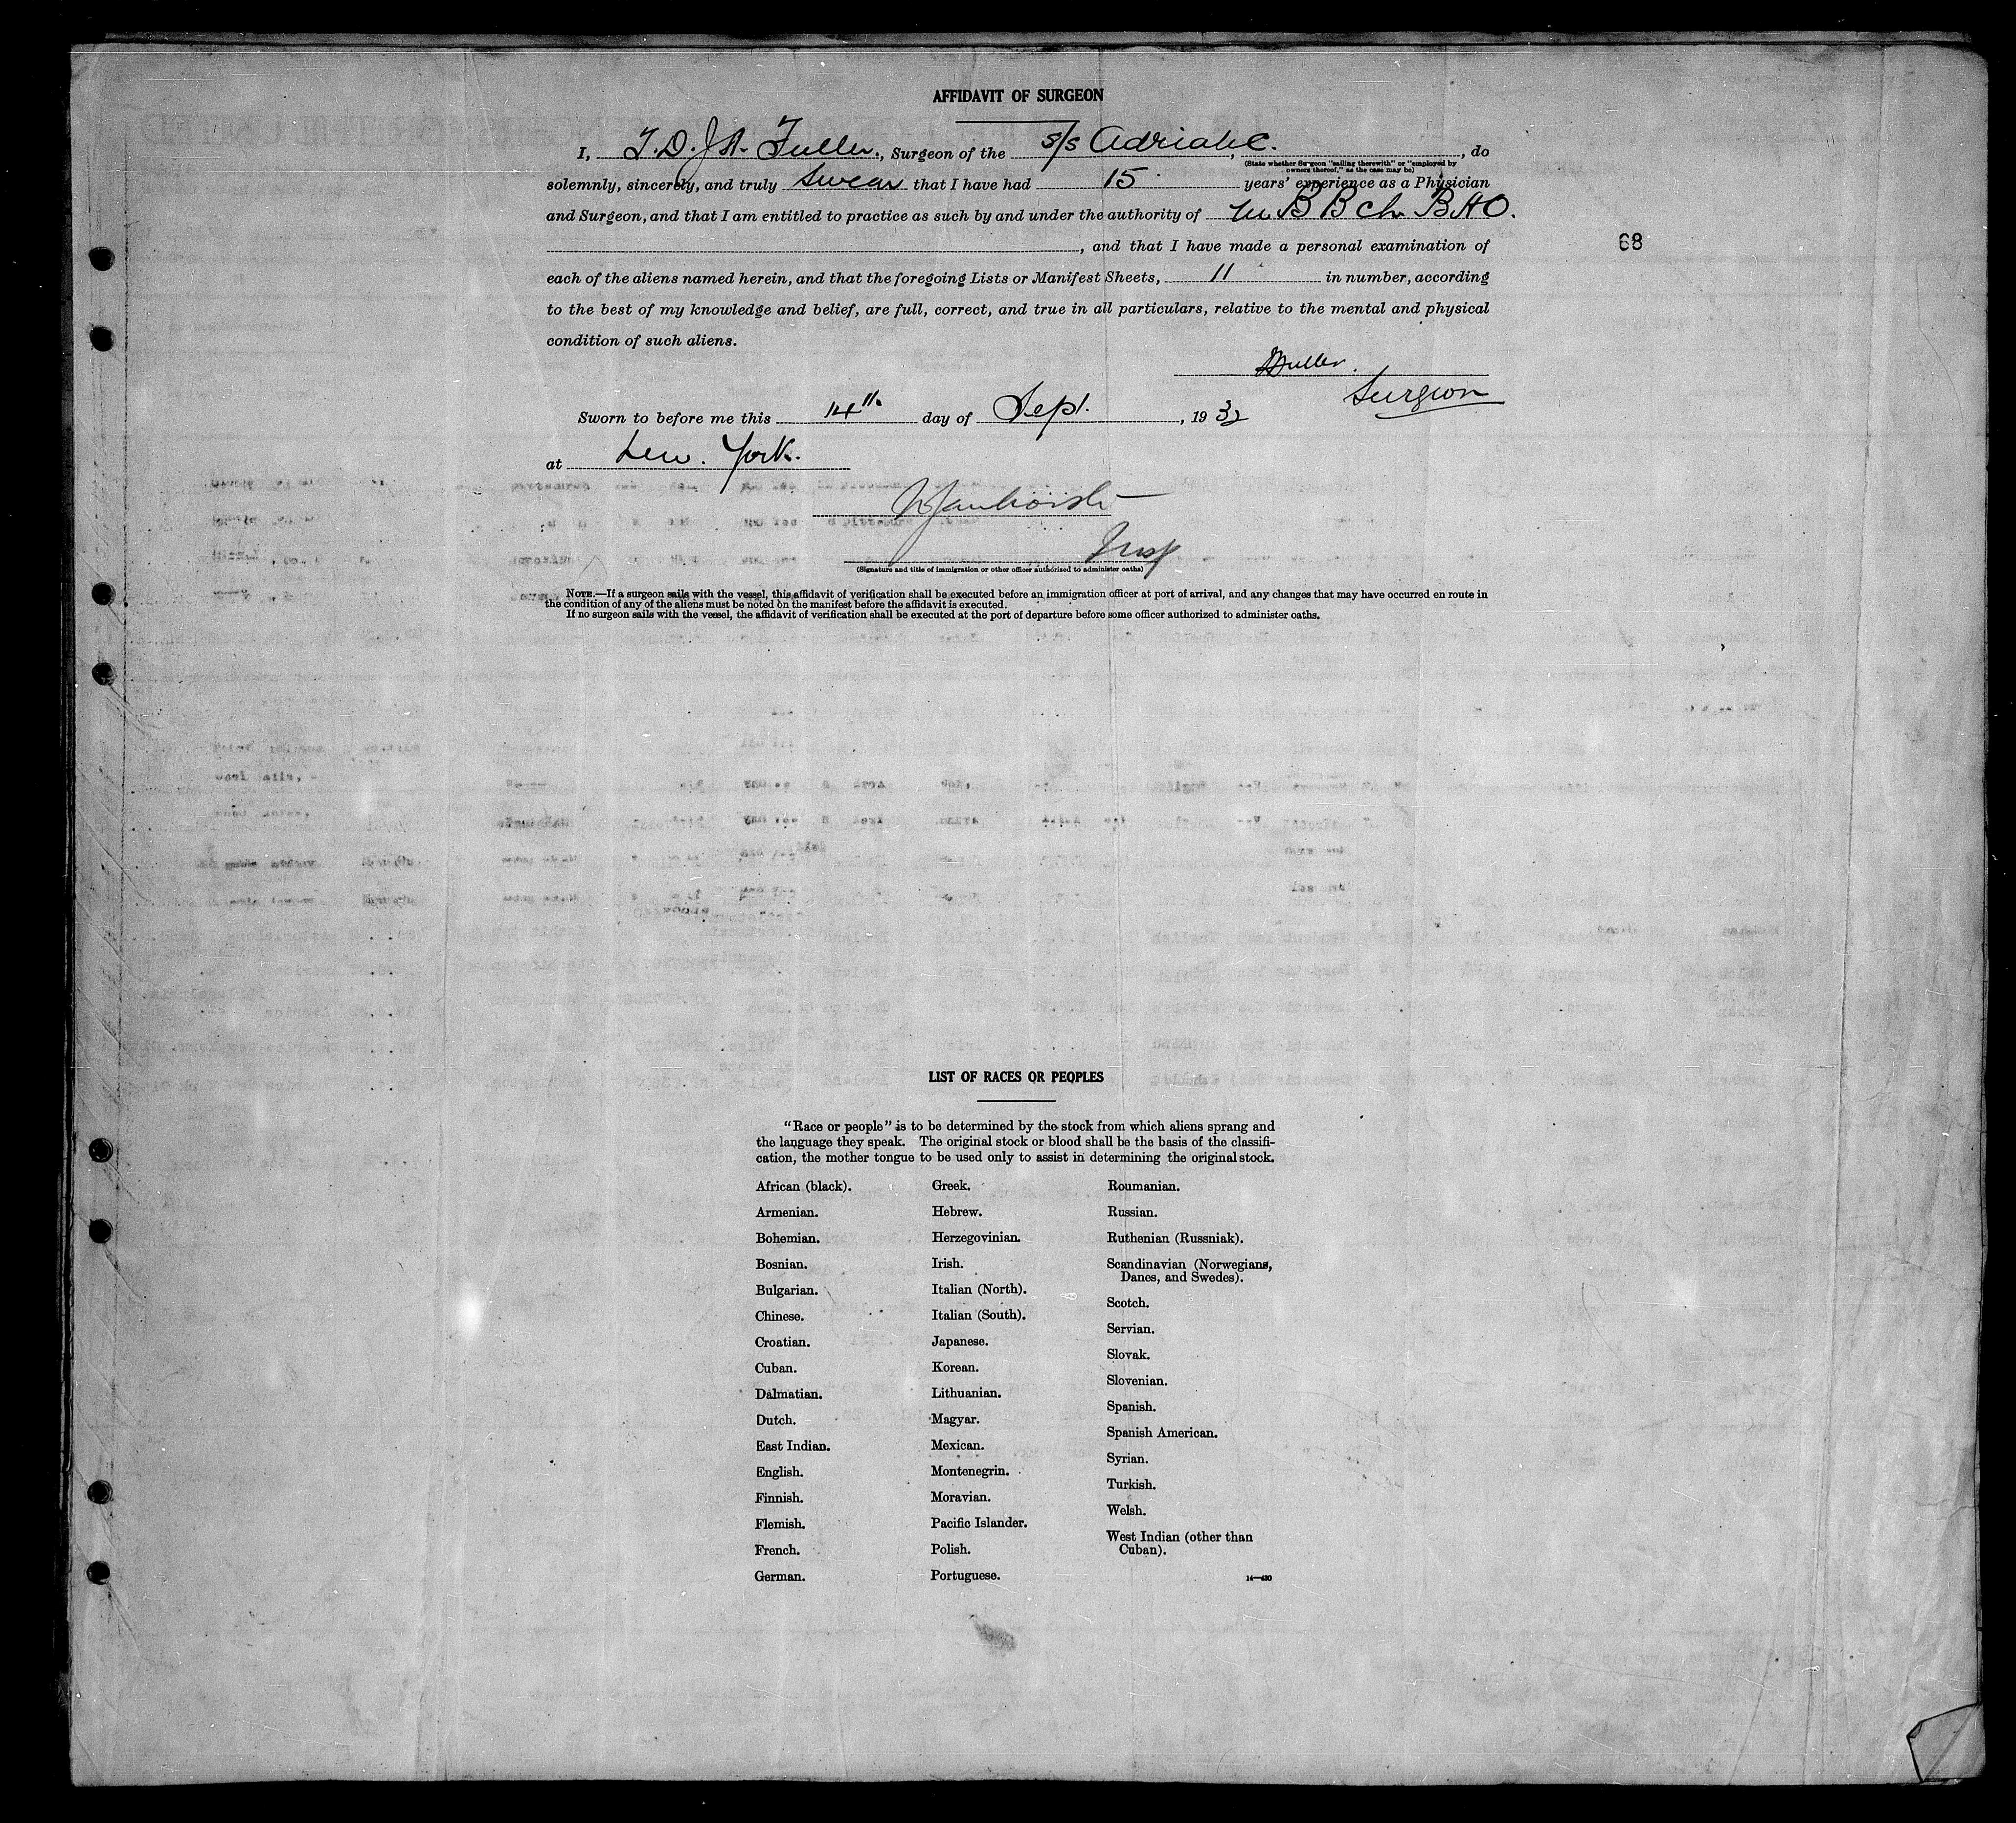 AFFIDAVIT OF SURGEON
I, T. D. J. A. Fuller, Surgeon of the s/s Adriatic, do
(State whether Surgeon "sailing therewith" or "employed by
owners thereof," as the case may be)
solemnly, sincerely, and truly swear that I have had 15 years' experience as a Physician
and Surgeon, and that I am entitled to practice as such by and under the authority of M B B Ch B A O.
68
, and that I have made a personal examination of
each of the aliens named herein, and that the foregoing Lists or Manifest Sheets, 11 in number, according
to the best of my knowledge and belief, are full, correct, and true in all particulars, relative to the mental and physical
condition of such aliens.
Fuller.
Surgeon
Sworn to before me this 14th day of Sept., 1932
at New York.
Insp
(Signature and title of immigration or other officer authorized to administer oaths)
NOTE.—If a surgeon sails with the vessel, this affidavit of verification shall be executed before an immigration officer at port of arrival, and any changes that may have occurred en route in
the condition of any of the aliens must be noted on the manifest before the affidavit is executed.
If no surgeon sails with the vessel, the affidavit of verification shall be executed at the port of departure before some officer authorized to administer oaths.
LIST OF RACES OR PEOPLES
"Race or people" is to be determined by the stock from which aliens sprang and
the language they speak. The original stock or blood shall be the basis of the classifi-
cation, the mother tongue to be used only to assist in determining the original stock.
African (black).
Armenian.
Bohemian.
Bosnian.
Bulgarian.
Chinese.
Croatian.
Cuban.
Dalmatian.
Dutch.
East Indian.
English.
Finnish.
Flemish.
French.
German.
Greek.
Hebrew.
Herzegovinian.
Irish.
Italian (North).
Italian (South).
Japanese.
Korean.
Lithuanian.
Magyar.
Mexican.
Montenegrin.
Moravian.
Pacific Islander.
Polish.
Portuguese.
Roumanian.
Russian.
Ruthenian (Russniak).
Scandinavian (Norwegians,
Danes, and Swedes).
Scotch.
Servian.
Slovak.
Slovenian.
Spanish.
Spanish American.
Syrian.
Turkish.
Welsh.
West Indian (other than
Cuban).
14—430